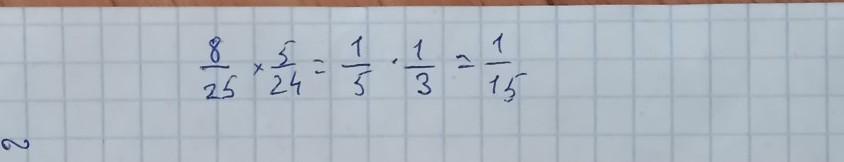 8/25 × 5/24 = 1/5 · 1/3 = 1/15
2